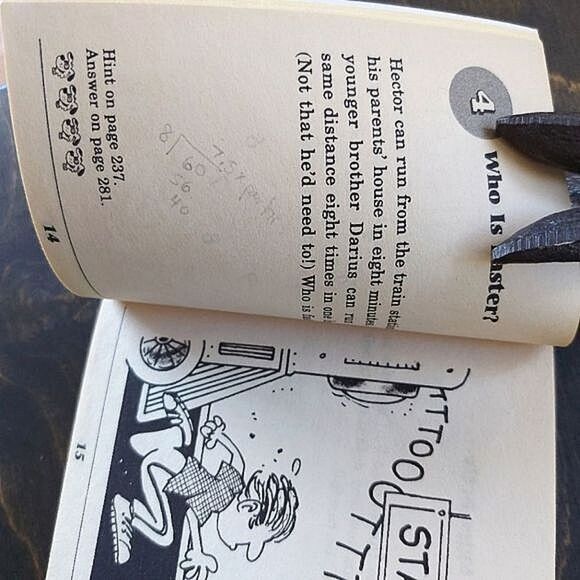 4
Who Is
aster?
Hector can run from the train stati
his parents' house in eight minutes
younger brother Darius can ru
same distance eight times in one
(Not that he'd need to!) Who is
8
60
56
40
Hint on page 237.
Answer on page 281.
14
TTTOO
STA
TTT
15